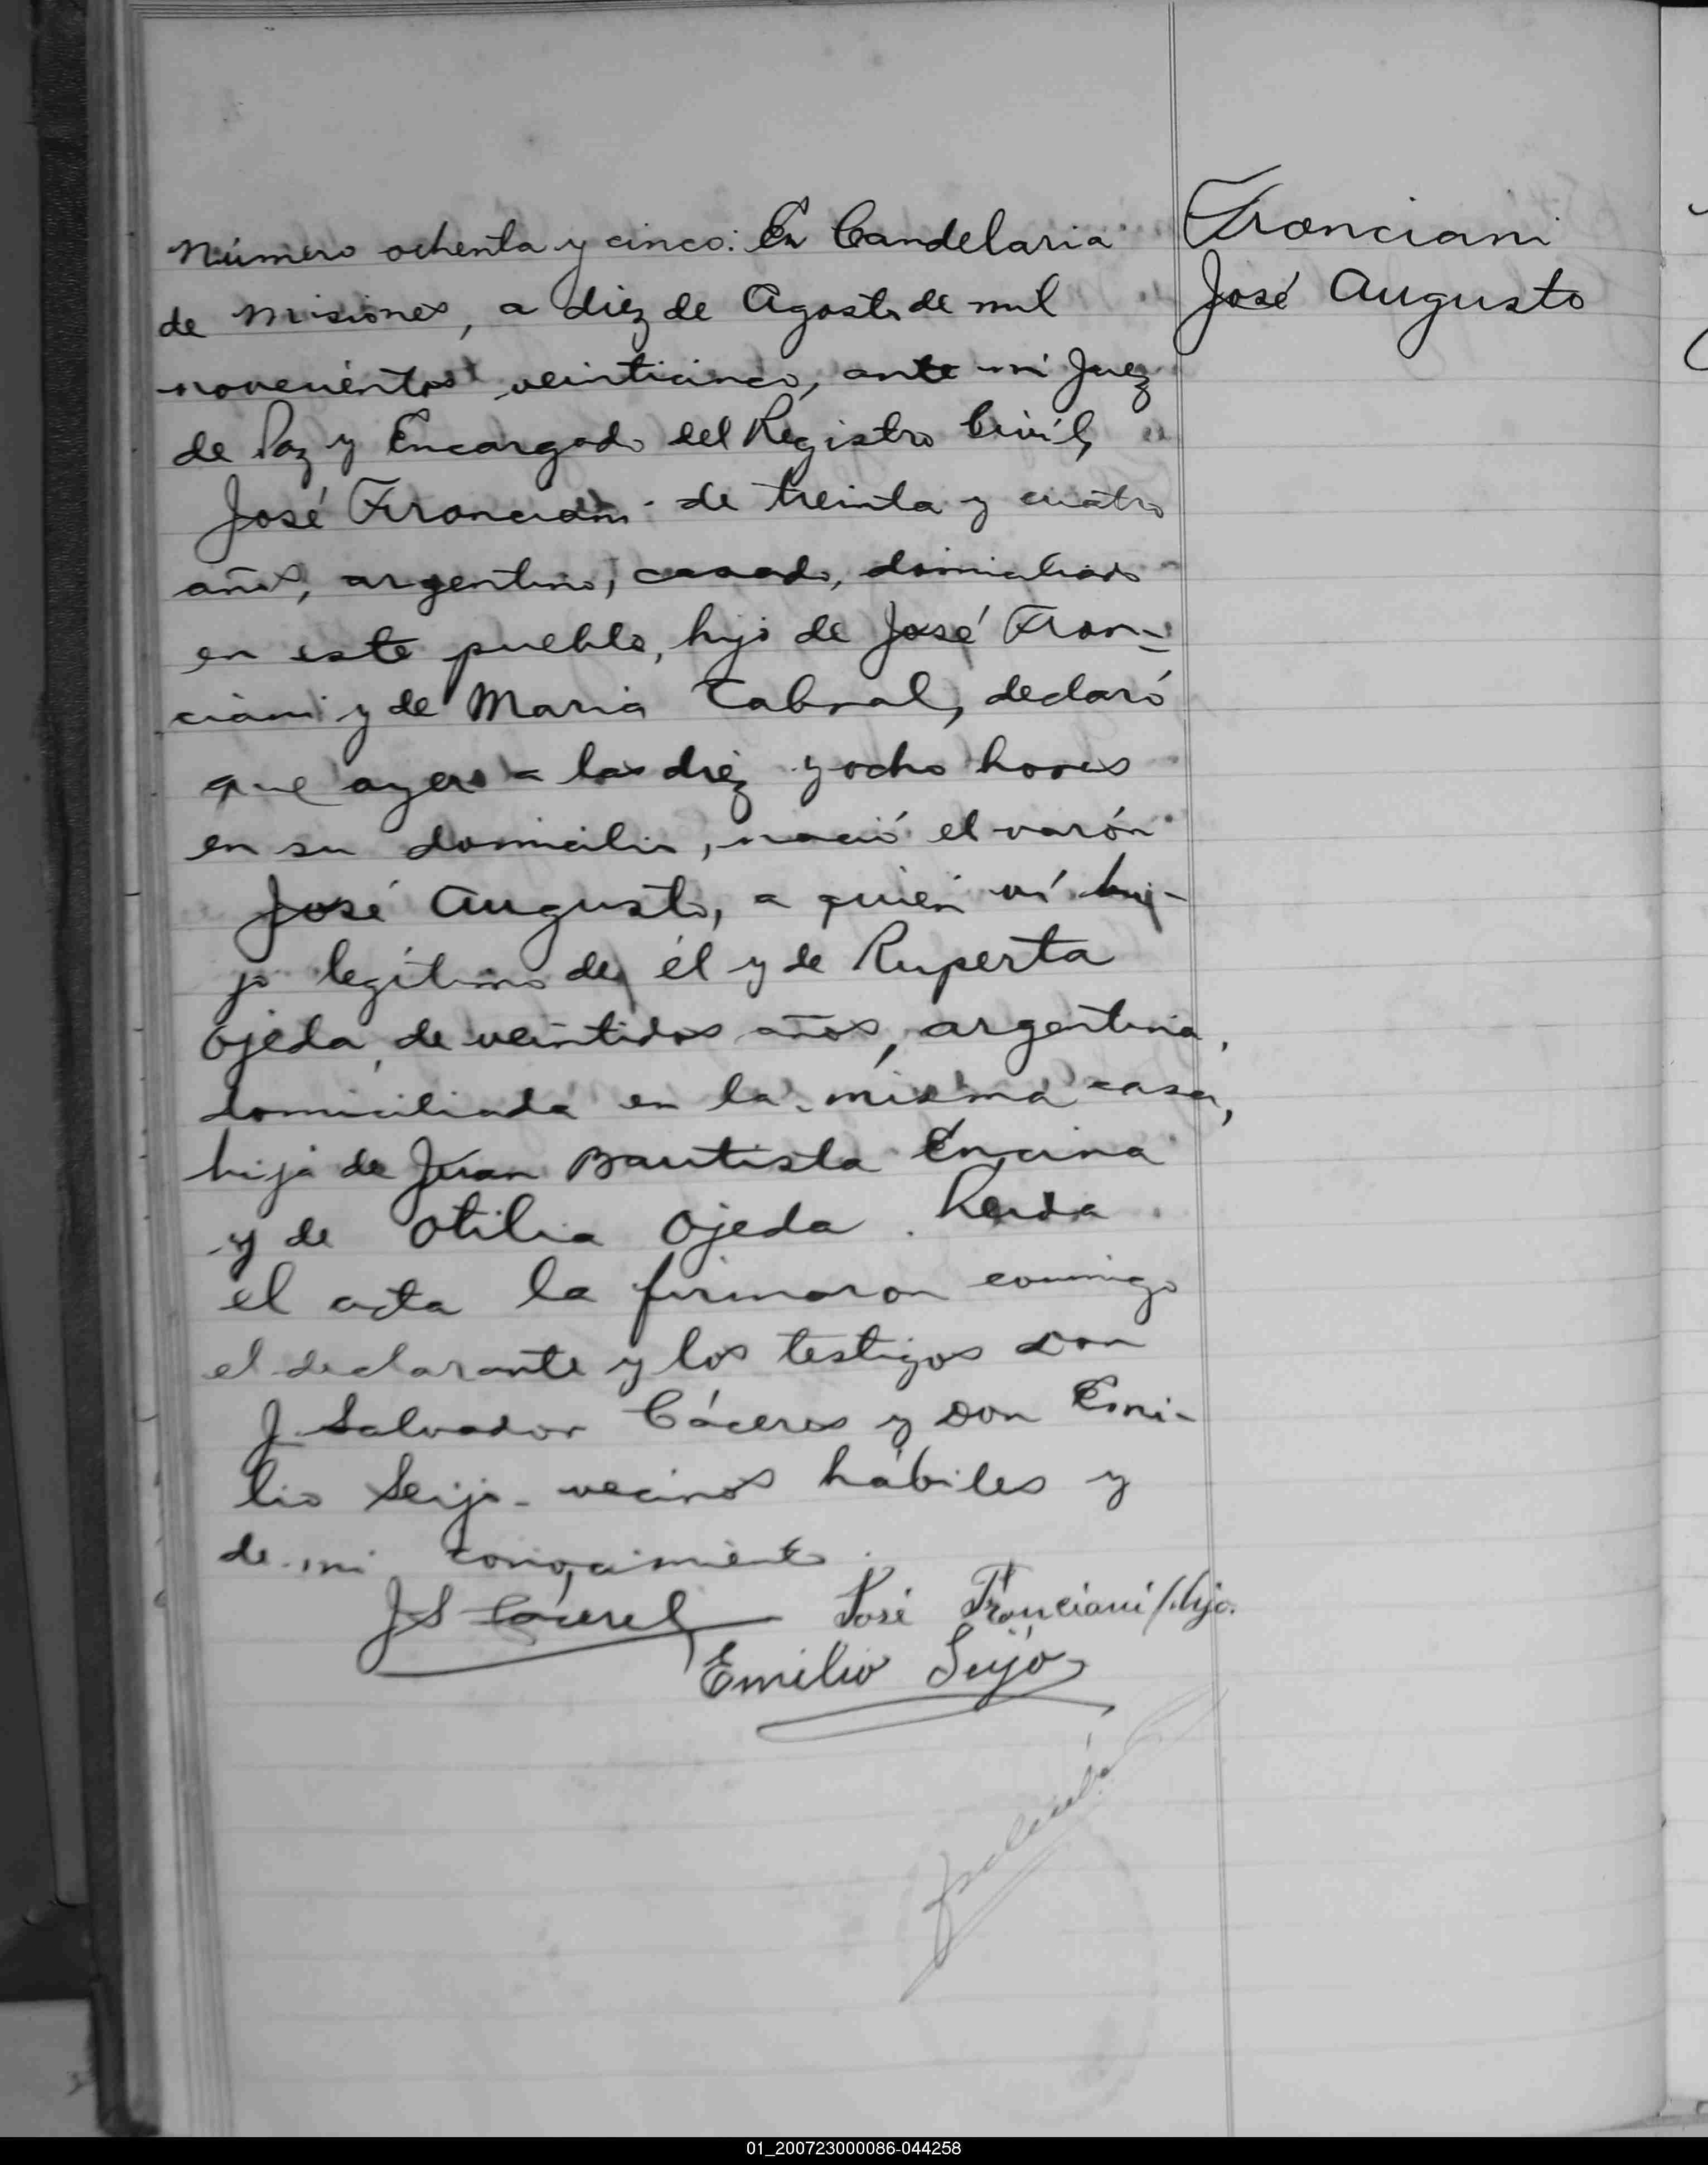 Número ochenta y cinco: En Candelaria
de Misiones, a diez de Agosto de mil
novecientos veinticinco, ante mi Juez
de Paz y Encargado del Registro Civil,
José Fronciani de treinta y cuatro
años, argentino, casado, domiciliado
en este pueblo, hijo de José Fron-
ciani y de Maria Cabral, declaró
que ayer a las diez y ocho horas
en su domicilio, nació el varón
José Augusto, a quien ví hi-
jo legítimo de él y de Ruperta
Ojeda, de veintidos años, argentina,
domiciliada en la misma casa,
hija de Juan Bautista Encina
y de Otilia Ojeda. Leida
el acta la firmaron conmigo
el declarante y los testigos Don
J. Salvador Cáceres y Don Emi-
lio Seijo - vecinos hábiles y
de mi conocimiento.
JS Cáceres José Fronciani /hijo.
Emilio Seijo
Fronciani
José Augusto
01_200723000086-044258